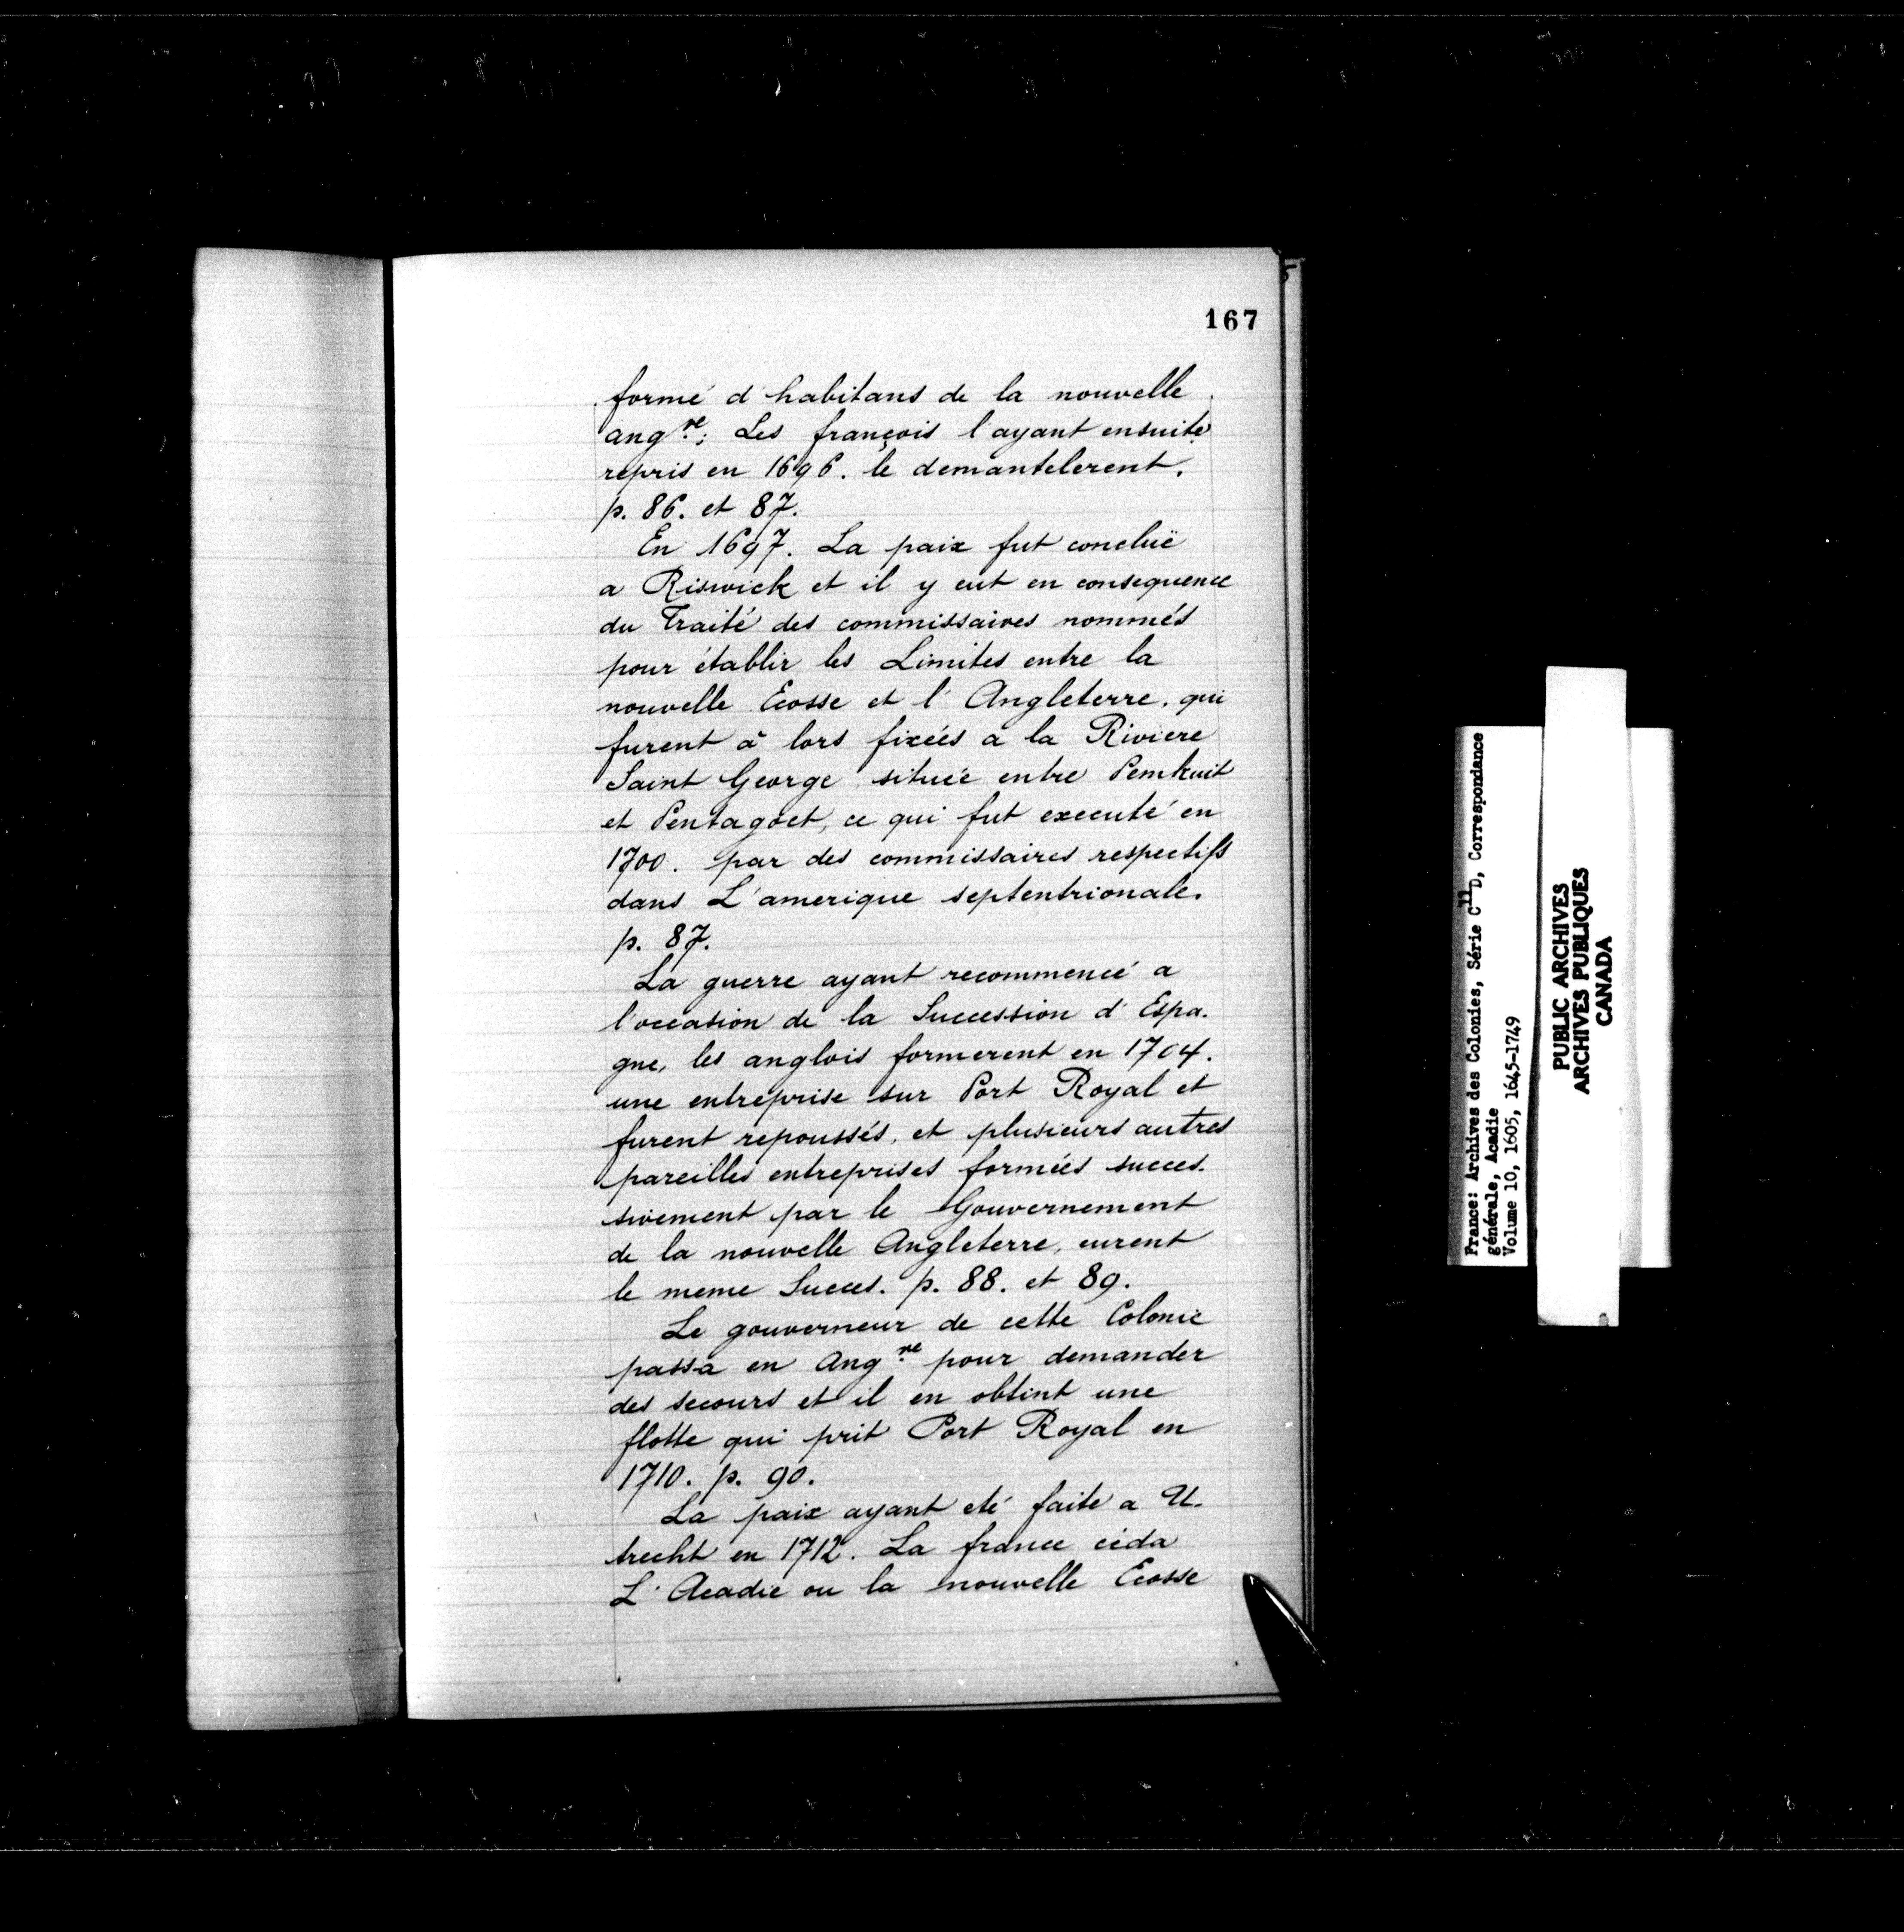 167
formé d'habitans de la nouvelle
ang.re; Les françois l'ayant ensuite
repris en 1696. le demantelerent.
p. 86. et 87.
En 1697. La paix fut concluë
a Riswick et il y eut en consequence
du Traité des commissaires nommés
pour établir les Limites entre la
nouvelle Ecosse et l'Angleterre, qui
furent à lors fixées a la Riviere
Saint George située entre Pemkuit
et Pentagoet, ce qui fut executé en
1700. par des commissaires respectifs
dans L'amerique septentrionale.
p. 87.
La guerre ayant recommencé a
l'occasion de la Succession d'Espa-
gne, les anglois formerent en 1704.
une entreprise sur Port Royal et
furent repoussés, et plusieurs autres
pareilles entreprises formées succes-
sivement par le Gouvernement
de la nouvelle Angleterre, eurent
le meme Succes. p. 88. et 89.
Le gouverneur de cette Colonie
passa en Ang.re pour demander
des secours et il en obtint une
flotte qui prit Port Royal en
1710. p. 90.
La paix ayant eté faite a U-
trecht en 1712. La france céda
L'Acadie ou la nouvelle Ecosse
France: Archives des Colonies, Série C11D, Correspondance
générale, Acadie
Volume 10, 1605, 1645-1749
PUBLIC ARCHIVES
ARCHIVES PUBLIQUES
CANADA